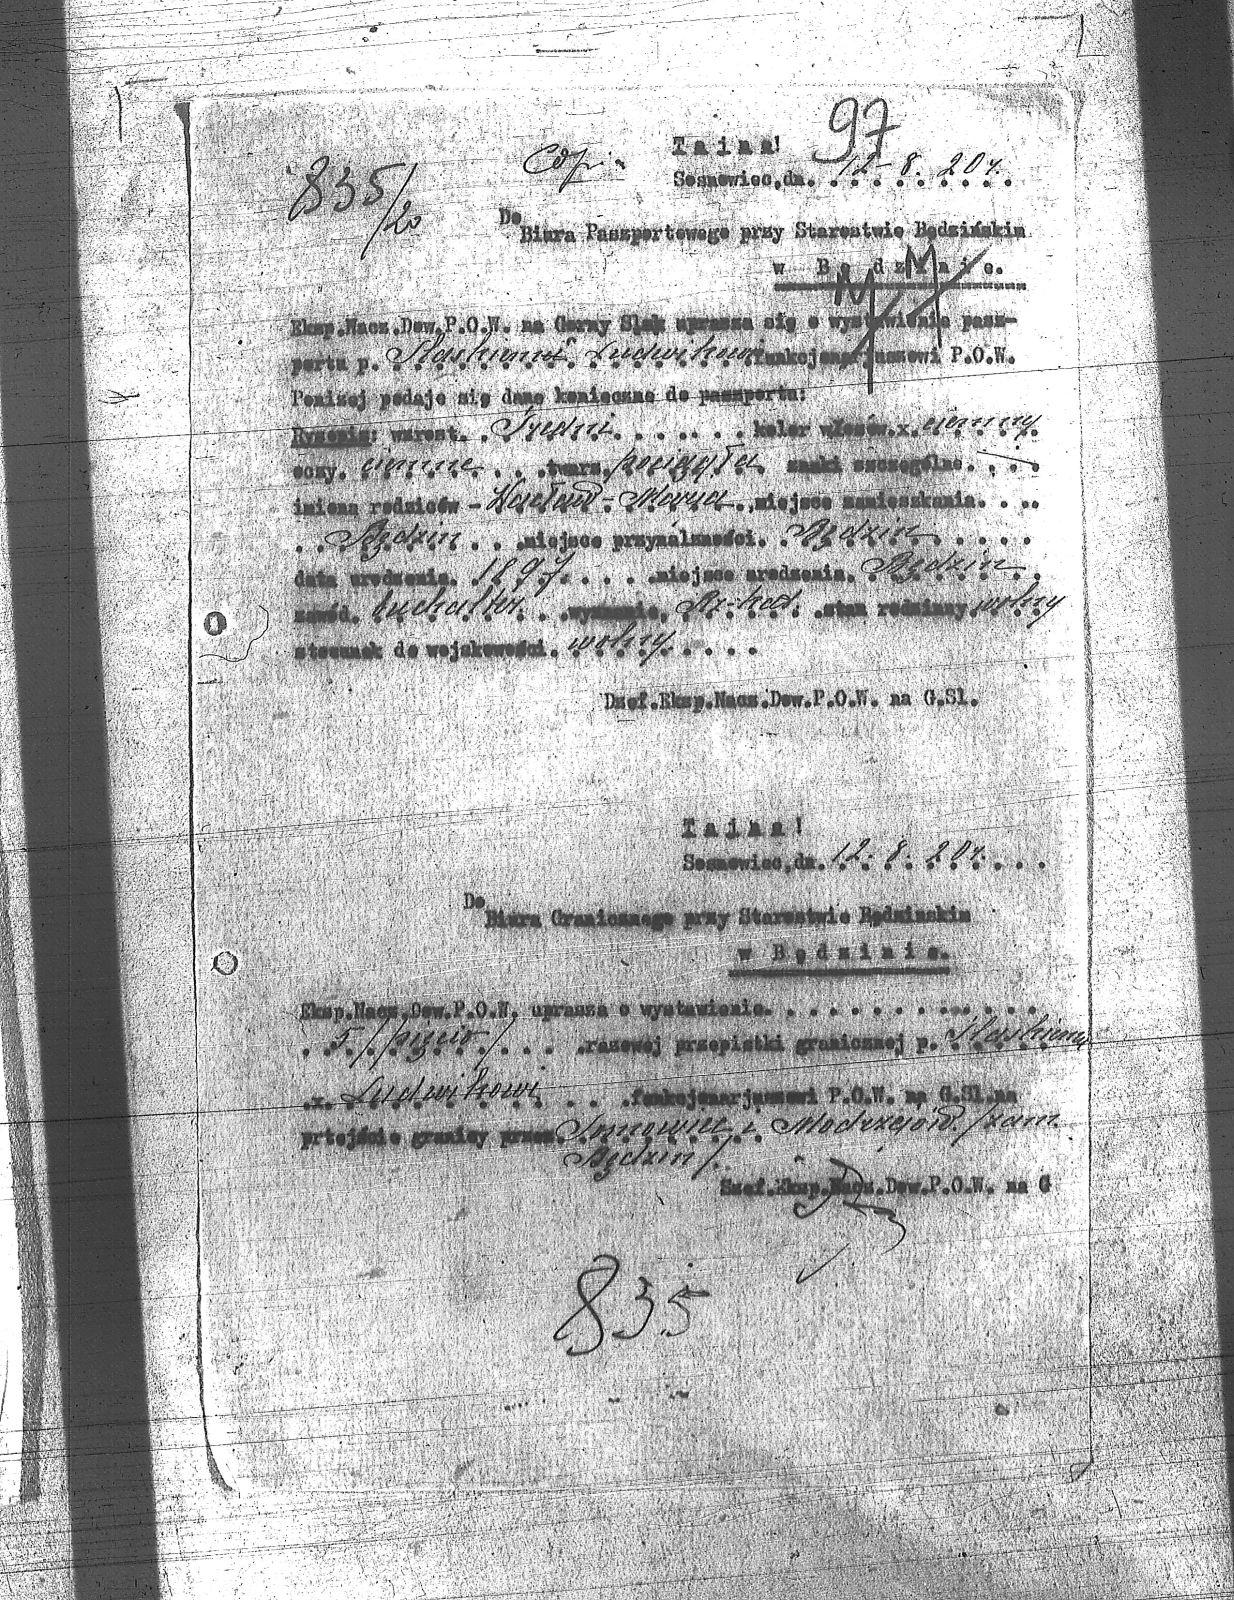 97
Tajna!
835/20
Odp.
Sosnowiec,dn. 12-8. 20r.
Do
Biura Paszportowego przy Starostwie Będzińskim
w Będzinie.
Eksp.Nacz.Dow.P.O.W. na Gorny Sląk uprasza się o wystawienie pasz-
portu p. Ślaskiemu Ludwikowi funkcjonarjuszowi P.O.W.
Ponizej podaje się dane konieczne do paszportu:
Rysopis: wzrost. Średni kolor włosów.x. ciemny
oczy. ciemne twarz. pociągła znaki szczególne. —
imiona rodziców - Wacław - Marya miejsce zamieszkania.
Będzin miejsce przynależności. Będzin
data urodzenia. 1897 miejsce urodzenia. Będzin
zawód. buchalter. wyznanie, Rz-kat. stan rodzinny wolny
stosunek do wojskowości. wolny
Dzef.Eksp.Nacz.Dow.P.O.W. na G.Sl.
Tajna!
Sosnowiec,dn. 12-8. 20r.
Do
Biura Granicznego przy Starostwie Będzinskim
w Będzinie.
Eksp.Nacz.Dow.P.O.W. uprasza o wystawienie.
5/pięcio/ razowej przepistki granicznej p. Ślaskiemu
.x. Ludwikowi funkcjonarjuszowi P.O.W. na G.Sl.na
prtejście granicy przez. Sosnowiec i Modrzejów. /zam.
Będzin/.
Szef.Eksp.Nacz.Dow.P.O.W. na G
835